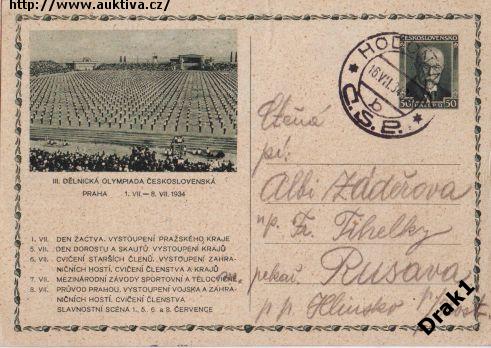 http://www.auktiva.cz/
ČESKOSLOVENSKO
50 50
HOL
16.VII.34
b
Č.S.P.
III. DĚLNICKÁ OLYMPIADA ČESKOSLOVENSKÁ
PRAHA 1. VII.—8. VII. 1934
1. VII. DEN ŽACTVA. VYSTOUPENÍ PRAŽSKÉHO KRAJE
5. VII. DEN DOROSTU A SKAUTŮ. VYSTOUPENÍ KRAJŮ
6. VII. CVIČENÍ STARŠÍCH ČLENŮ. VYSTOUPENÍ ZAHRA-
NIČNÍCH HOSTÍ. CVIČENÍ ČLENSTVA A KRAJŮ
7. VII. MEZINÁRODNÍ ZÁVODY SPORTOVNÍ A TĚLOCVIČNÉ
8. VII. PRŮVOD PRAHOU. VYSTOUPENÍ VOJSKA A ZAHRA-
NIČNÍCH HOSTÍ. CVIČENÍ ČLENSTVA
SLAVNOSTNÍ SCÉNA 1., 5., 6. a 8. ČERVENCE
Ctěná
pí:
Albi Záděrova
u p. Fr. Tihelky
pekař Rusava
p. p. Hlinsko
Drak1